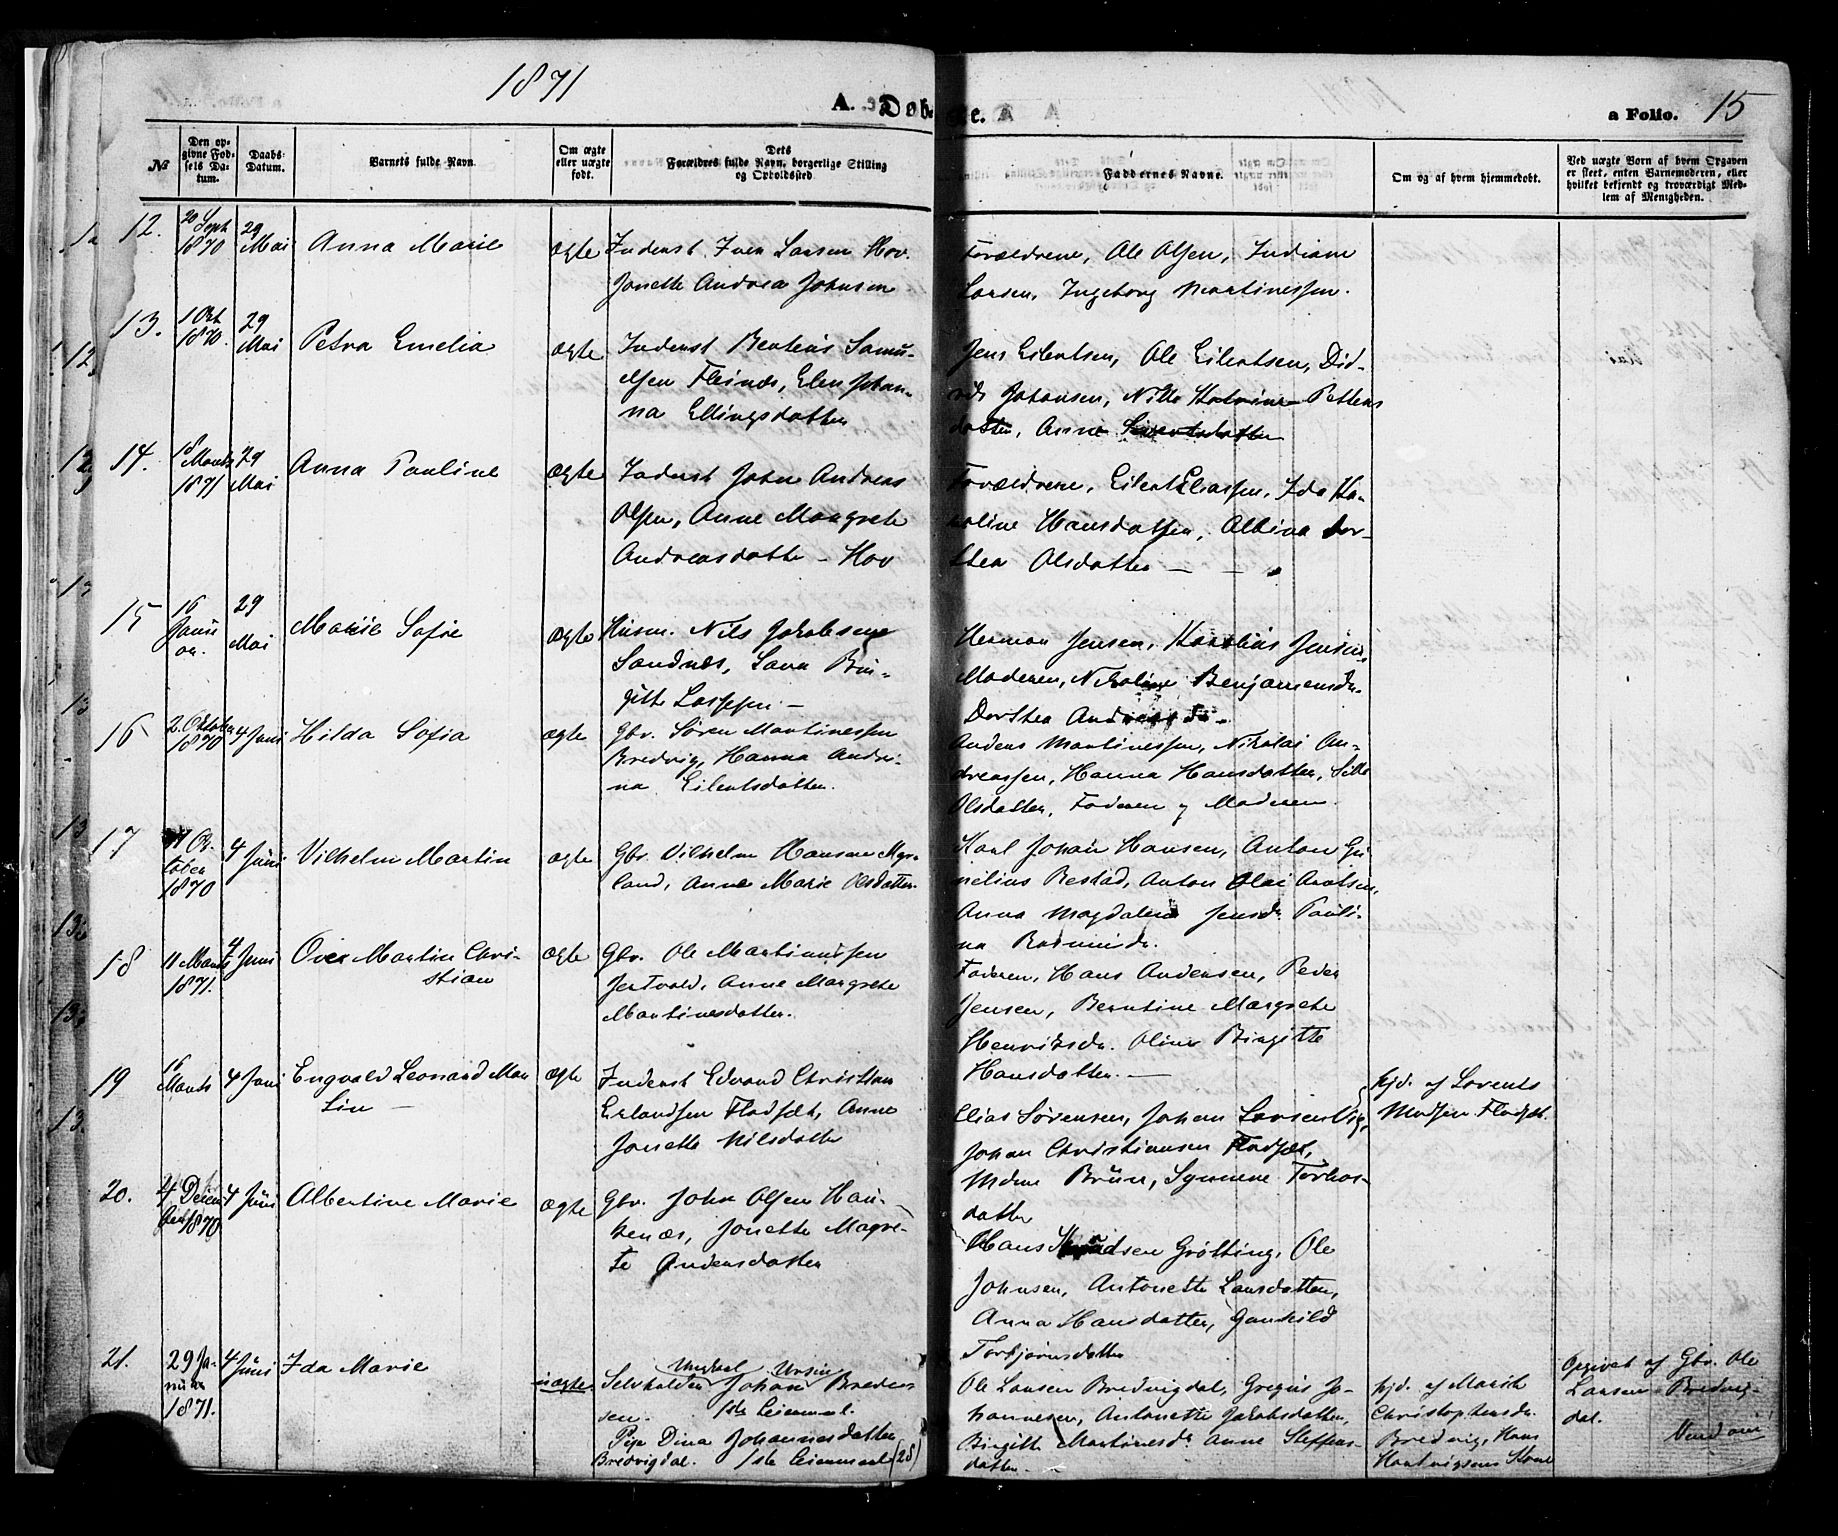 1871
A. Døbte.
a Folio. 15
№
Den op-
givne Fød-
sels Da-
tum.
Daabs-
Datum.
Barnets fulde Navn.
Om ægte
eller uægte
født.
Dets
Forældres fulde Navn, borgerlige Stilling
og Opholdssted.
Faddernes Navne.
Om og af hvem hjemmedøbt.
Ved uægte Børn af hvem Opgaven
er skeet, enten Barnemoderen, eller
hvilket bekjendt og troværdigt Med-
lem af Menigheden.
12.
20 Sept
1870
29
Mai
Anna Marie
ægte
Inderst Iver Larsen Hov.
Jonette Andrea Johnsen
Forældrene, Ole Olsen, Indiane
Larsen, Ingeborg Martinessen.
13.
1 Okt
1870.
29
Mai
Petra Emelia
ægte
Inderst Benteus Samu-
elsen Fleinæs, Elen Johan-
na Ellingsdatter
Jens Eilertsen, Ole Eilertsen, Did-
rik Johansen, Nille Katrine Petters
datter, Anne
14.
18 Marts
1871
29
Mai
Anna Pauline
ægte
Inderst John Andreas
Olsen, Anne Margrete
Andreasdatter - Hov
Forældrene, Eilert Eliassen, Ida Ka-
roline Hansdatter, Albina Dor-
thea Olsdatter —
15
16
Janu
ar.
29
Mai
Marie Sofie
ægte
Husm. Nils Jakobsen
Sandnæs, Sara Bir-
gitte Larssen —
Herman Jensen, Karelius Jensen,
Moderen, Nikoline Benjaminsdr.
Dorthea Andreasdr.
16
2 Oktober
1870
4 Juni
Hilda Sofia
ægte
Gbr. Søren Martinessen
Bredvig, Hanna Andri-
na Eilertsdatter.
Anders Martinessen, Nikolai An-
dreassen, Hanna Hansdatter, Sille
Olsdatter, Faderen og Moderen.
17
11 Ok-
tober
1870
4 Juni
Vilhelm Martin
ægte
Gbr. Vilhelm Hansen Myr-
land, Anne Marie Olsdatter.
Karl Johan Hansen, Anton Gu-
nelius Restad, Anton Olai Arntsen,
Anna Magdalena Jensdr. Pauli-
na Rasmusdr.
18
11 Marts
1871.
4 Juni
Over Martin Chri-
stian
ægte
Gbr. Ole Martinussen
Jertvold, Anne Margrete
Martinesdatter.
Faderen, Hans Andersen, Peder
Jensen, Berntine Margrete
Henriksdr. Oline Birgitte
Hansdatter. —
19
16
Marts
4 Juni
Engvald Leonard Mar
tin —
ægte
Inderst Edvard Christian
Erlandsen Fladsæt, Anne
Jonette Nilsdatter
Elias Sørensen, Johan Larsen Vig,
Johan Christiansen Fladsæt,
Mdme Bruun, Synnene Torkos-
datter
hjd. af Lorents
Madsen Fladsæt.
20.
4 Decem
ber 1870
4 Juni
Albertine Marie
ægte
Gbr. John Olsen Hau-
kenæs, Jonette Magre-
te Andersdatter
Hans Knudsen Grøtting, Ole
Johnsen, Antonette Larsdatter,
Anna Hansdatter, Gunhild
Torbjørnsdatter
21.
29 Ja-
nuar
1871.
4 Juni
Ida Marie
uægte
Selvholden Ungkarl Johan Bredes
sen. 1ste Leiermaal.
Pige Dina Johannesdatter
Bredvigdal. 1ste Leiermaal (28)
Ole Larsen Bredvigdal, Gregus Jo-
hannesen, Antonette Jakobsdatter,
Birgitte Martinesdr. Anne Steffens-
datter.
hjd. af Marith
Christophersdr.
Bredvig, Hans
Hartvigsens Kone
Opgivet af Gbr. Ole
Larsen Bredvig-
dal.